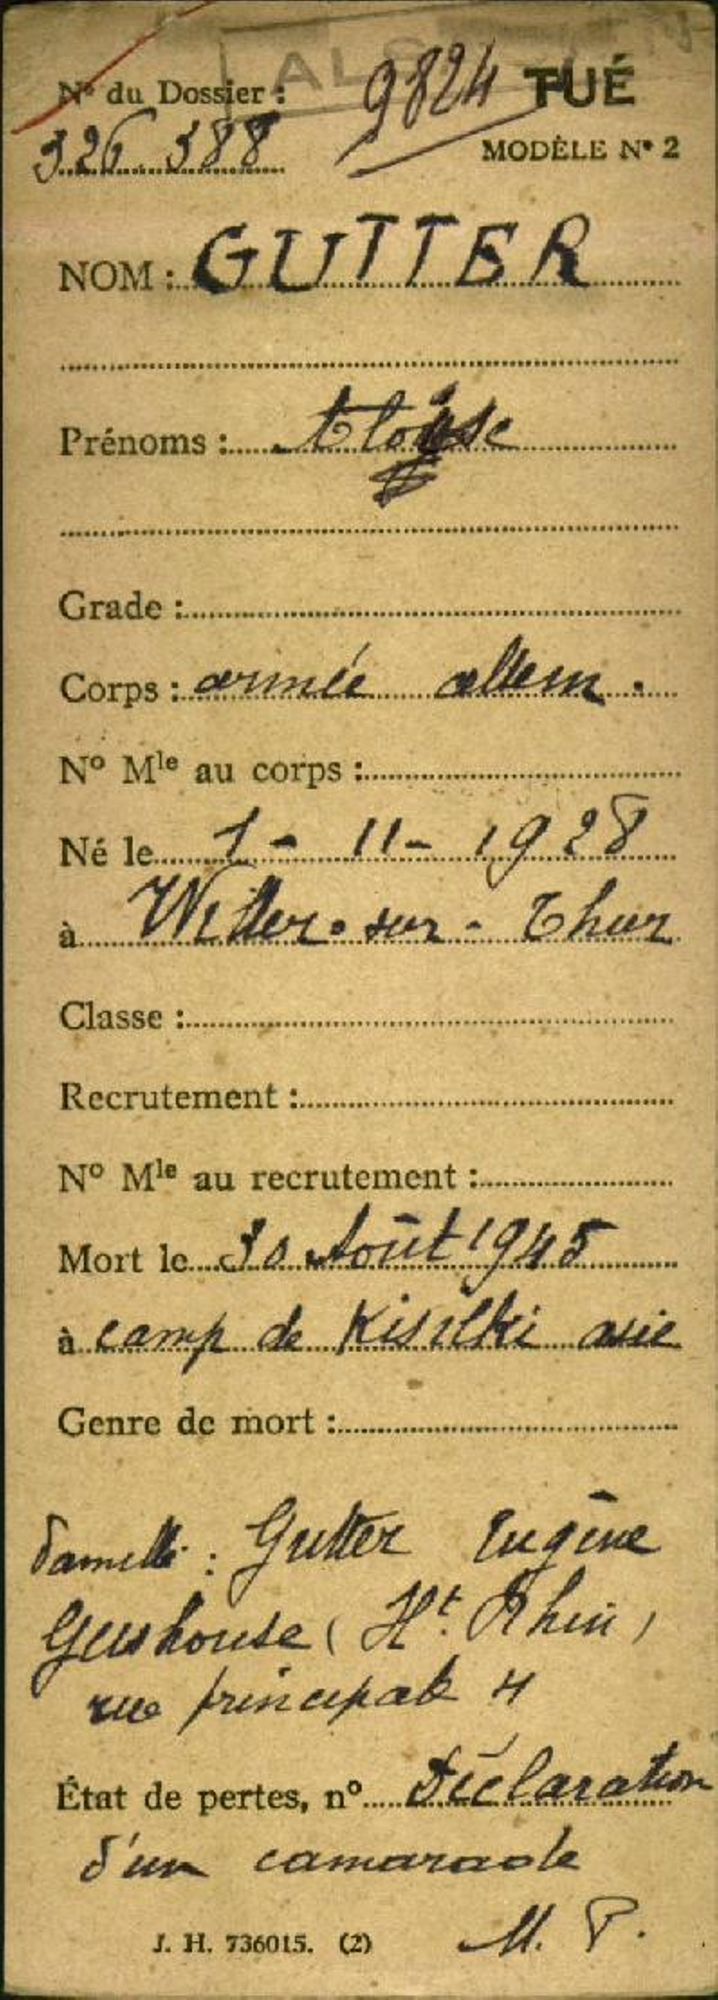 ALS
N° du Dossier : 9824 TUÉ
326.388
MODÈLE N° 2
NOM : GUTTER
Prénoms :
Grade :
Corps : armée allem.
N° Mle au corps :
Né le 1-11-1928
à Willer-sur-Thur
Classe :
Recrutement :
N° Mle au recrutement :
Mort le 30 Août 1945
à camp de Kisilki asie
Genre de mort :
famille : Gutter Eugène
Geishouse (Ht Rhin)
rue principale 4
État de pertes, n° Déclaration
d'un camarade
J. H. 736015. (2) M. P.